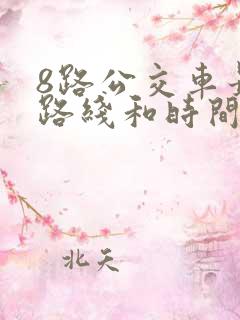 8路公交车
路綫和時間
北天